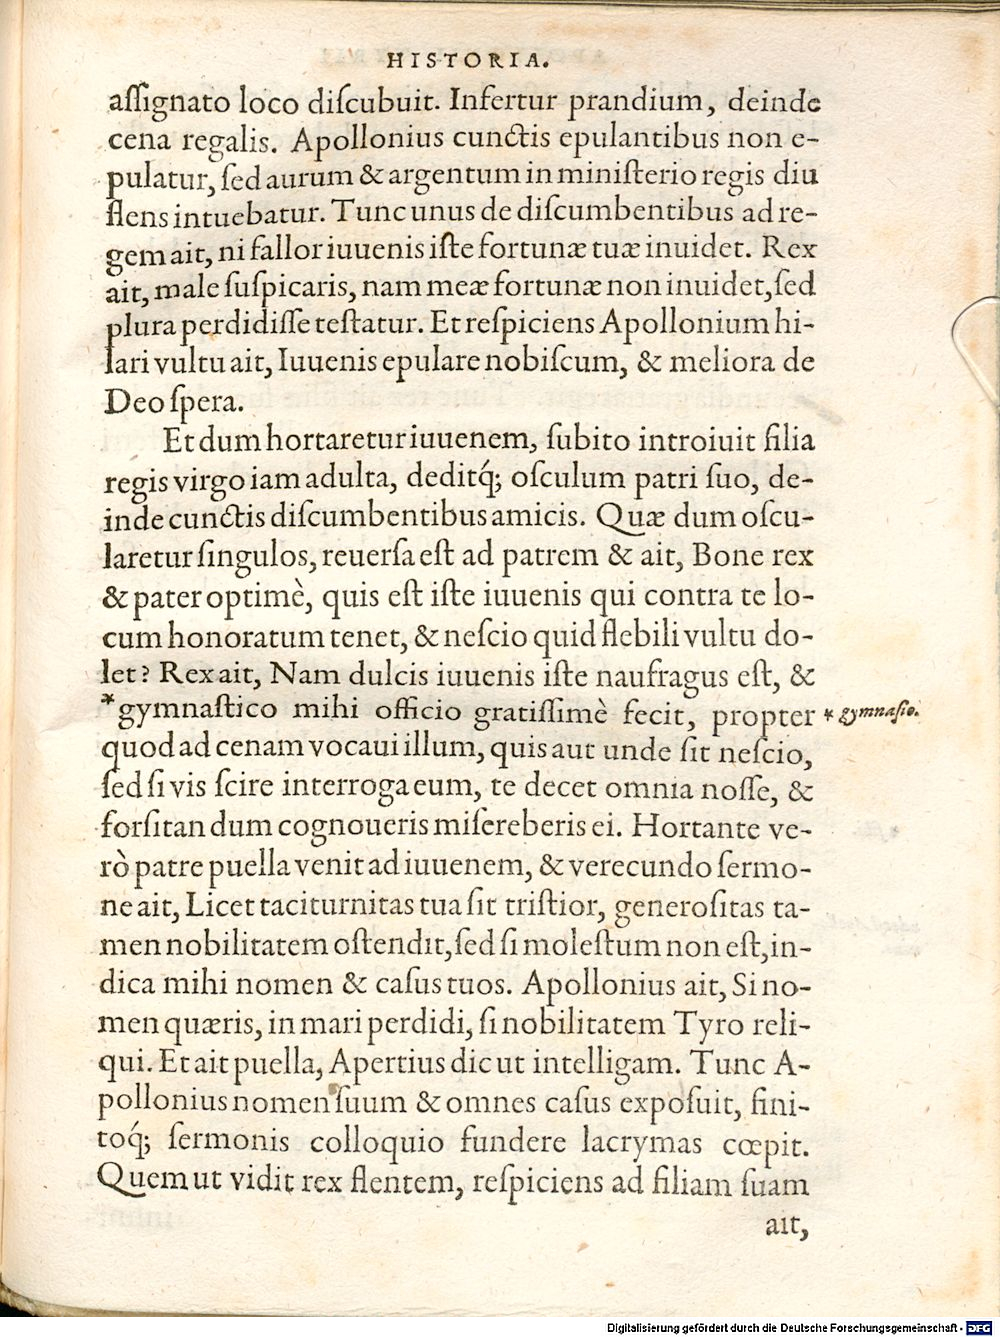 HISTORIA.
aſſignato loco diſcubuit. Infertur prandium, deinde
cena regalis. Apollonius cunctis epulantibus non e-
pulatur, ſed aurum & argentum in miniſterio regis diu
flens intuebatur. Tunc unus de diſcumbentibus ad re-
gem ait, ni fallor iuuenis iſte fortunæ tuæ inuidet. Rex
ait, male ſuſpicaris, nam meæ fortunæ non inuidet, ſed
plura perdidiſſe teſtatur. Et reſpiciens Apollonium hi-
lari vultu ait, Iuuenis epulare nobiſcum, & meliora de
Deo ſpera.
Et dum hortaretur iuuenem, ſubito introiuit filia
regis virgo iam adulta, deditq́; oſculum patri ſuo, de-
inde cunctis diſcumbentibus amicis. Quæ dum oſcu-
laretur ſingulos, reuerſa eſt ad patrem & ait, Bone rex
& pater optimè, quis eſt iſte iuuenis qui contra te lo-
cum honoratum tenet, & neſcio quid flebili vultu do-
let? Rex ait, Nam dulcis iuuenis iſte naufragus eſt, &
*gymnaſtico mihi officio gratiſſimè fecit, propter * gymnaſio.
quod ad cenam vocaui illum, quis aut unde ſit neſcio,
ſed ſi vis ſcire interroga eum, te decet omnia noſſe, &
forſitan dum cognoueris miſereberis ei. Hortante ve-
rò patre puella venit ad iuuenem, & verecundo ſermo-
ne ait, Licet taciturnitas tua ſit triſtior, generoſitas ta-
men nobilitatem oſtendit, ſed ſi moleſtum non eſt, in-
dica mihi nomen & caſus tuos. Apollonius ait, Si no-
men quæris, in mari perdidi, ſi nobilitatem Tyro reli-
qui. Et ait puella, Apertius dic ut intelligam. Tunc A-
pollonius nomen ſuum & omnes caſus expoſuit, fini-
toq́; ſermonis colloquio fundere lacrymas cœpit.
Quem ut vidit rex flentem, reſpiciens ad filiam ſuam
ait,
Digitalisierung gefördert durch die Deutsche Forschungsgemeinschaft - DFG